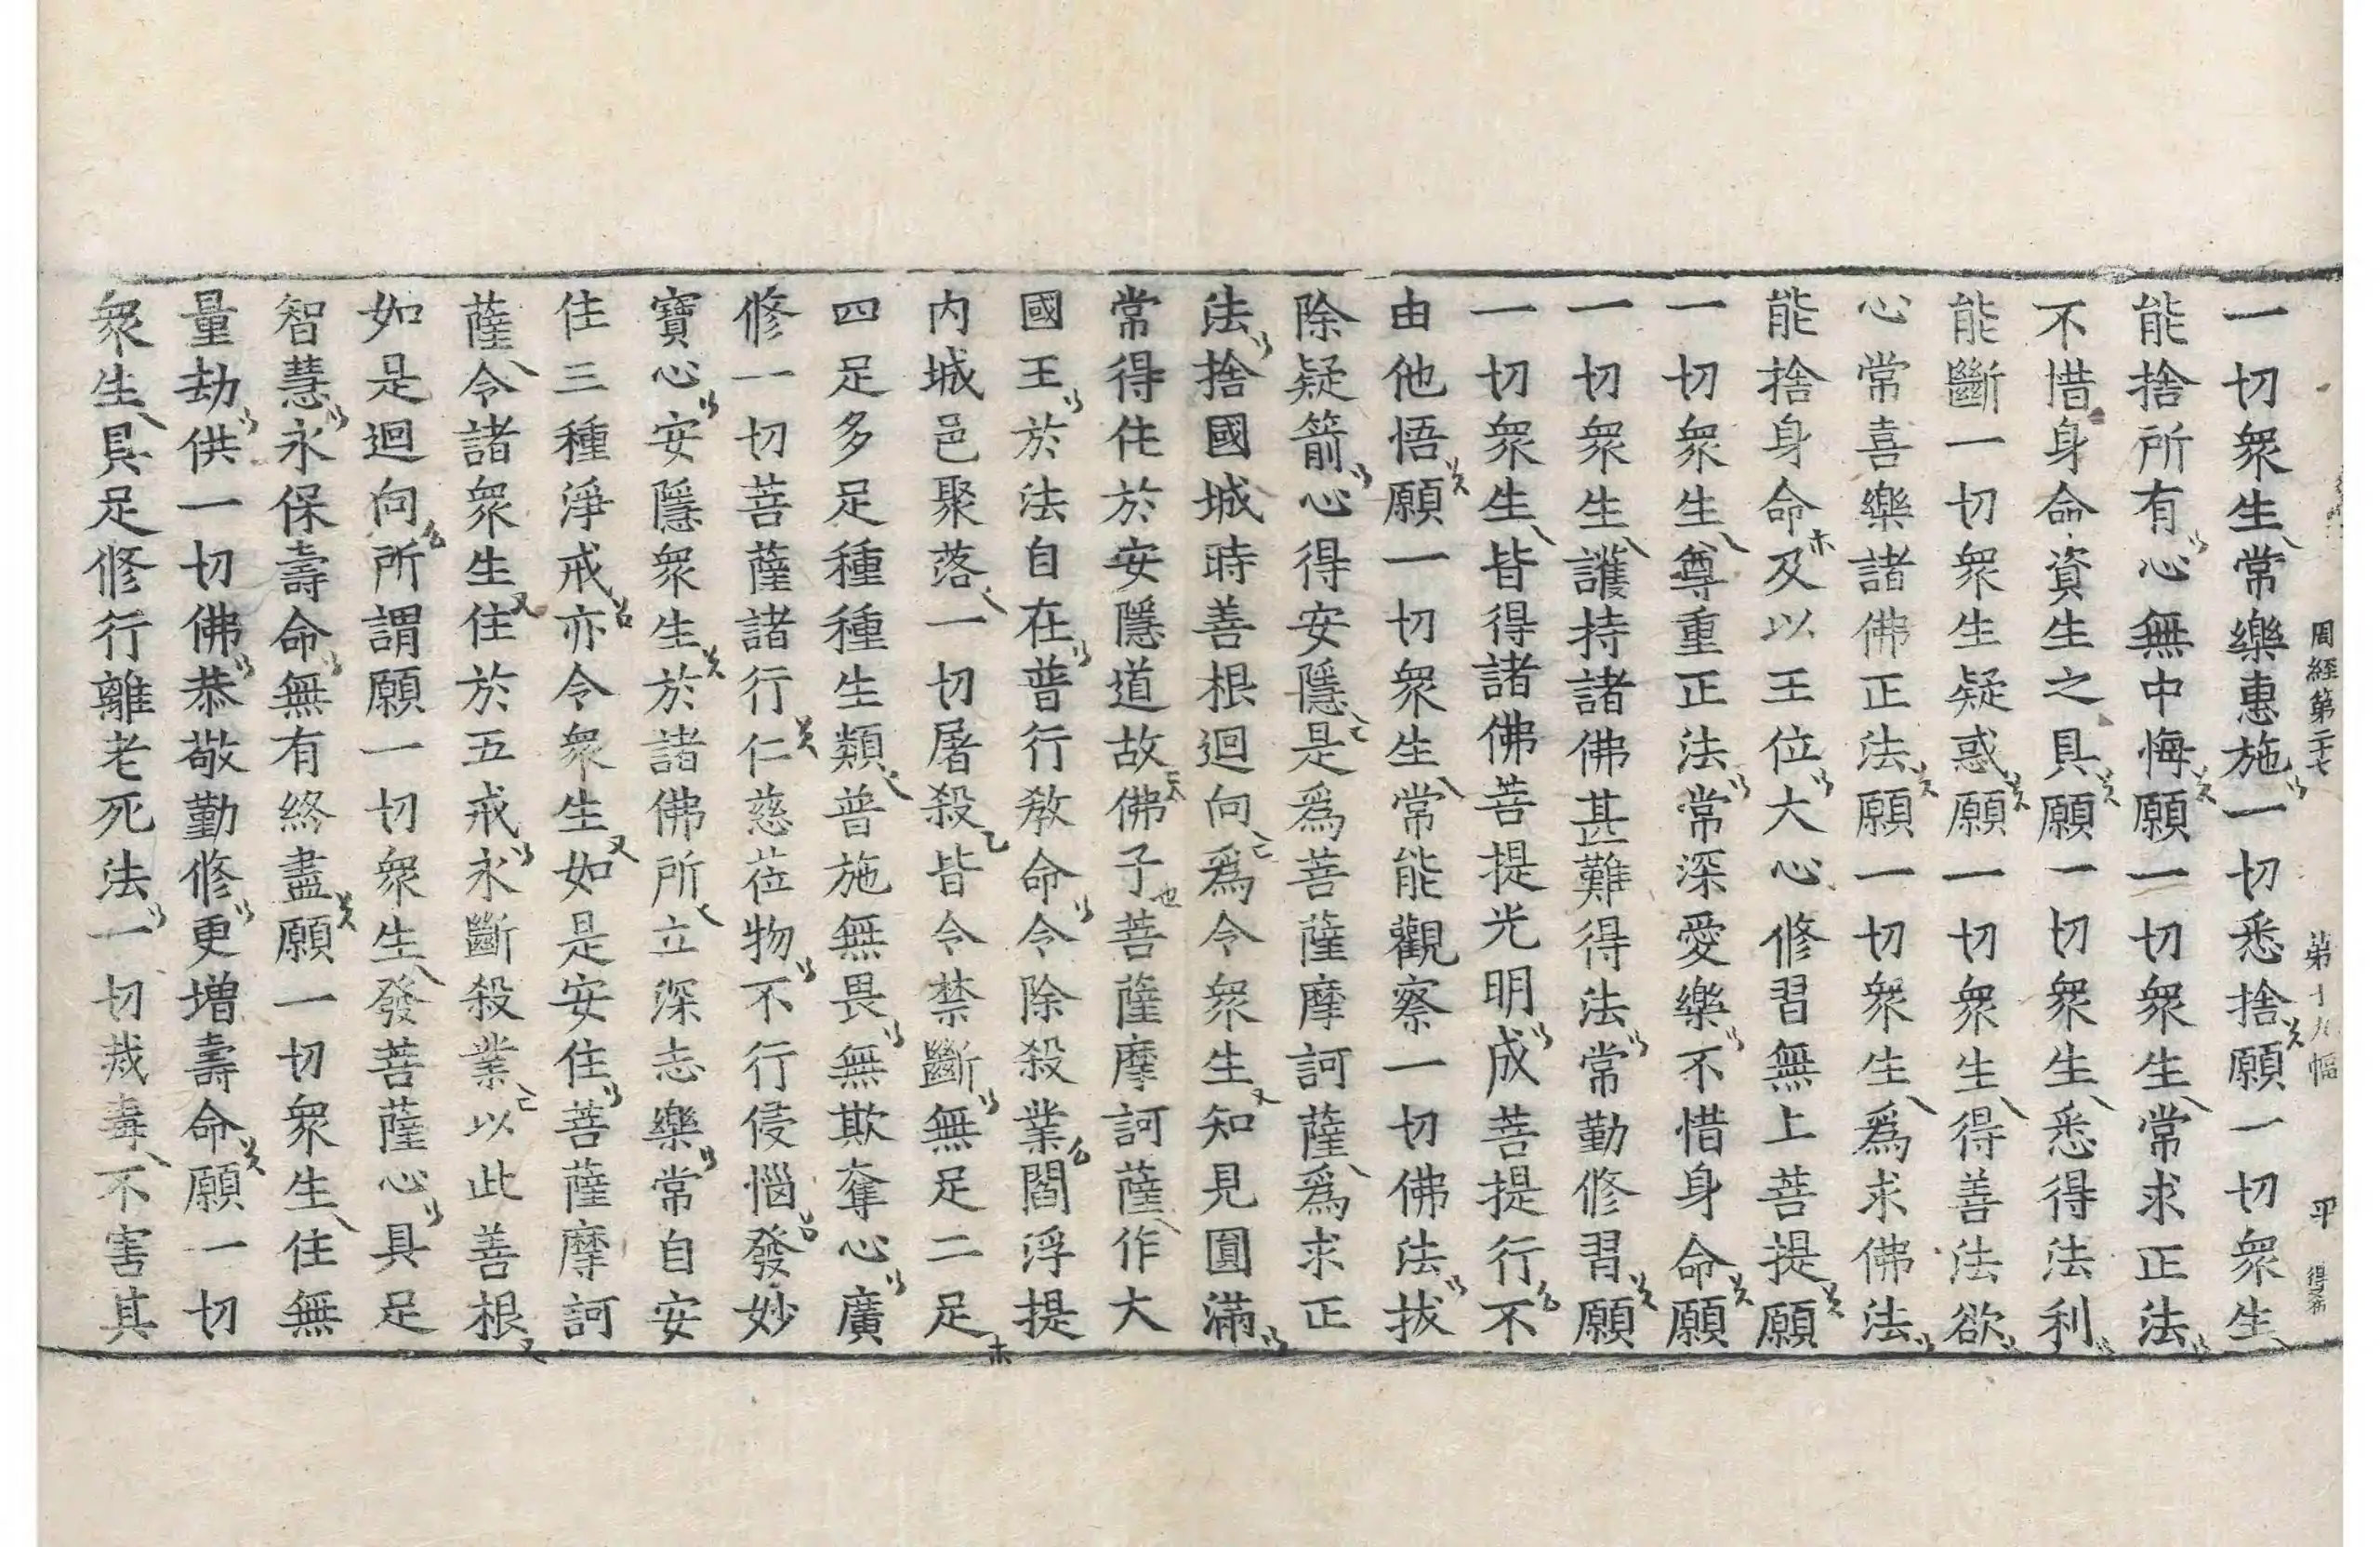 周經第二十七 第十九幅 平 得希
一切衆生常樂惠施一切悉捨願一切衆生
能捨所有心無中悔願一切衆生常求正法
不惜身命資生之具願一切衆生悉得法利
能斷一切衆生疑惑願一切衆生得善法欲
心常喜樂諸佛正法願一切衆生爲求佛法
能捨身命及以王位大心修習無上菩提願
一切衆生尊重正法常深愛樂不惜身命願
一切衆生護持諸佛甚難得法常勤修習願
一切衆生皆得諸佛菩提光明成菩提行不
由他悟願一切衆生常能觀察一切佛法拔
除疑箭心得安隱是爲菩薩摩訶薩爲求正
法捨國城時善根迴向爲令衆生知見圓滿
常得住於安隱道故佛子菩薩摩訶薩作大
國王於法自在普行教命令除殺業閻浮提
内城邑聚落一切屠殺皆令禁斷無足二足
四足多足種種生類普施無畏無欺奪心廣
修一切菩薩諸行仁慈莅物不行侵惱發妙
寶心安隱衆生於諸佛所立深志樂常自安
住三種淨戒亦令衆生如是安住菩薩摩訶
薩令諸衆生住於五戒永斷殺業以此善根
如是迴向所謂願一切衆生發菩薩心具足
智慧永保壽命無有終盡願一切衆生住無
量劫供一切佛恭敬勤修更增壽命願一切
衆生具足修行離老死法一切烖毒不害其